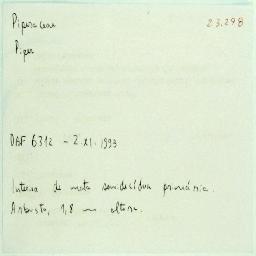 Piperaceae 23.298
Piper
DAF 6312 - 2.XI.1993
Interior de mata semidecídua primária.
Arbusto, 1,8 m altura.